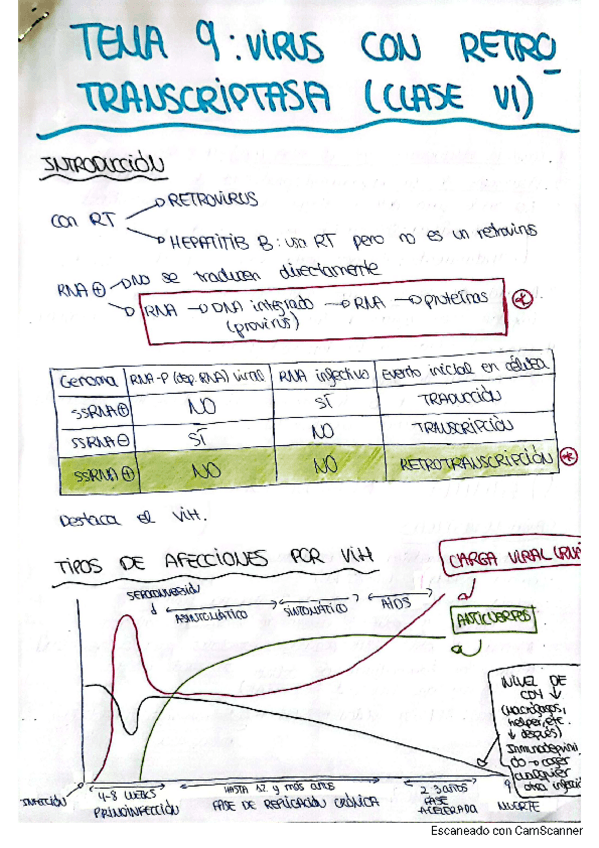 TEMA 9: VIRUS CON RETRO_
TRANSCRIPTASA (CLASE VI)
INTRODUCCIÓN
con RT
RETROVIRUS
HEPATITIS B: usa RT pero no es un retrovirus
RNA ⊕
NO se traducen directamente
RNA → DNA integrado → RNA → proteínas *
(provirus)
Genoma | RNA-P (dep. RNA) viral | RNA infectivo | Evento inicial en célula
ssRNA⊕ | NO | SÍ | TRADUCCIÓN
ssRNA⊖ | SÍ | NO | TRANSCRIPCIÓN
ssRNA⊕ | NO | NO | RETROTRANSCRIPCIÓN *
Destaca el VIH.
TIPOS DE AFECCIONES POR VIH
CARGA VIRAL
SEROCONVERSIÓN
ASINTOMÁTICO
SINTOMÁTICO
AIDS
ANTICUERPOS
NIVEL DE
CD4 ↓
(macrófagos,
helper, etc.
↓ después)
Inmunodeprimi_
do → coger
cualquier
otra
INFECCIÓN
4-8 WEEKS
PRIMOINFECCIÓN
HASTA 12 y más años
FASE DE REPLICACIÓN CRÓNICA
2-3 años
FASE
ACELERADA
MUERTE
Escaneado con CamScanner